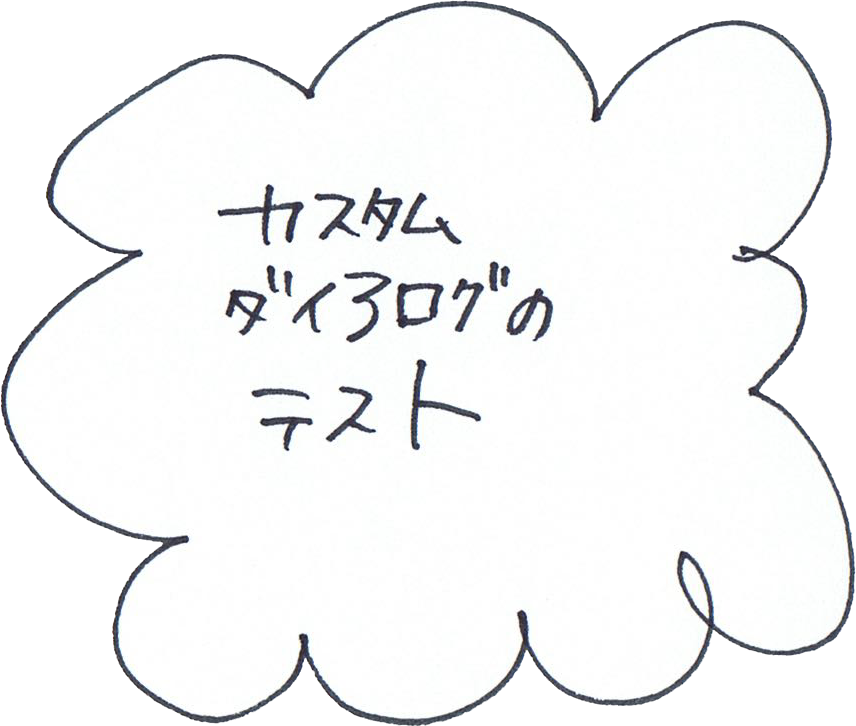 カスタム
ダイアログの
テスト